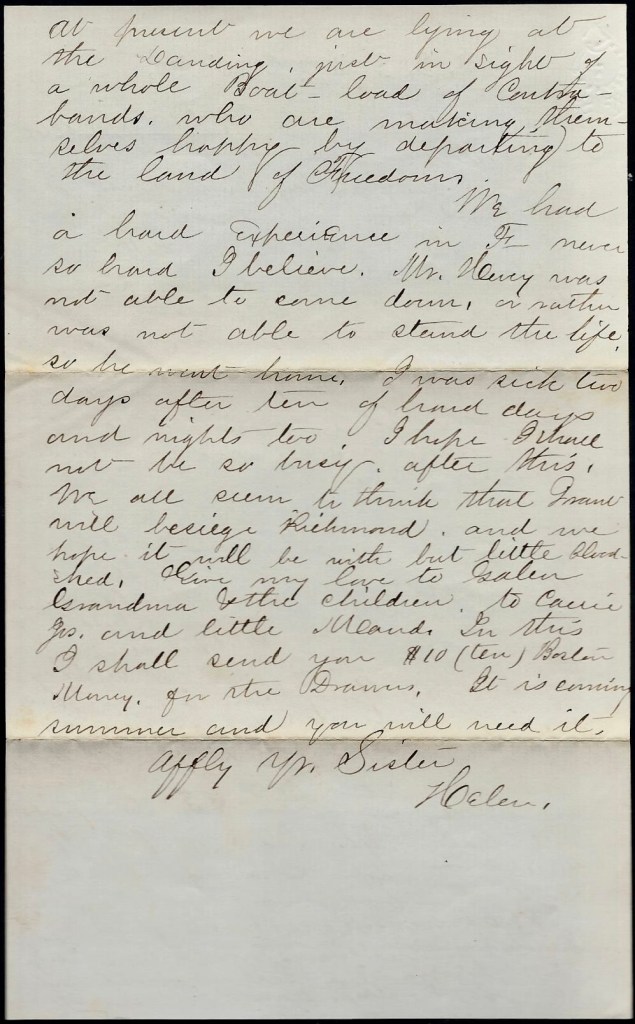 at present we are lying at
the Landing, just in sight of
a whole Boat-load of Contra-
bands, who are making them-
selves happy by departing to
the land of Freedom.
We had
a hard Experience in F— never
so hard I believe. Mr. Henry was
not able to come down, or rather
was not able to stand the life,
so he went home. I was sick two
days after ten of hard days
and nights too. I hope I shall
not be so busy, after this.
We all seem to think that Grant
will besiege Richmond, and we
hope it will be with but little blood-
shed. Give my love to Galen
Grandma & the children, to Carrie
Jos. and little Maud. In this
I shall send you $10 (ten) Boston
Money, for the. It is coming
summer and you will need it.
Affly Yr. Sister
Helen.